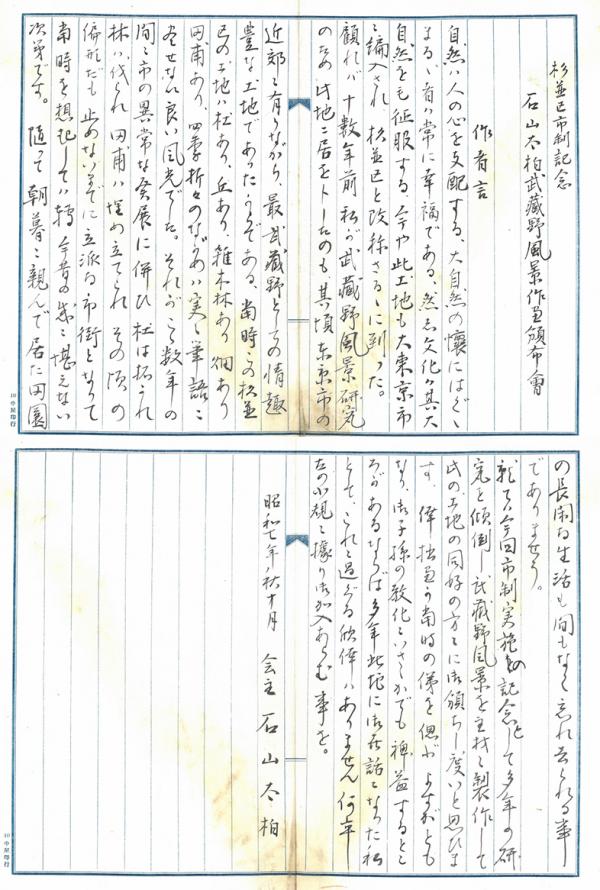 杉並区市制記念
石山太柏武蔵野風景作画頒布會
作者言
自然ハ人の心を支配する、大自然の懐にはぐゝ
まるゝ者ハ常に幸福である、然し文化ハ其大
自然をも征服する、今や此土地も大東京市
ニ編入され杉並区と改称さるゝに到つた。
顧れバ十数年前私が武蔵野風景研究
のため此地ニ居を卜したのも其頃東京市の
近郊ニ有りながら、最武蔵野としての情趣
豊な土地であつたからである、当時の杉並
区の土地ハ杜あり、丘あり、雑木林あり畑あり
田甫あり、四季折々のながめハ実ニ筆語ニ
尽せない良い風光でした。それがこゝ数年の
間ニ市の異常な発展に併ひ杜は拓かれ
林ハ伐られ田甫ハ埋め立てられその頃の
俤だも止めないまでに立派な市街となりて
当時を想起してハ轉今昔の感ニ堪えない
次第です。随て朝暮ニ親んで居た田園
の長閑な生活も間もなく忘れ去られる事
でありませう。
就てハ今回市制実施の記念として多年の研
究を傾倒し武蔵野風景を主材ニ製作して
此の土地の同好の方々に御頒ちし度いと思ひま
す、俾拙画が当時の俤を偲ぶよすがとも
なり、御子孫の教化にいさゝかでも裨益するとこ
ろがあるならば多年此地に御世話になつた私
として、これニ過ぐる欣倖ハありません何卒
左の小規ニ據り御加入あらむ事を。
昭和七年秋十月　会主　石山太柏
10 中星印行
10 中星印行